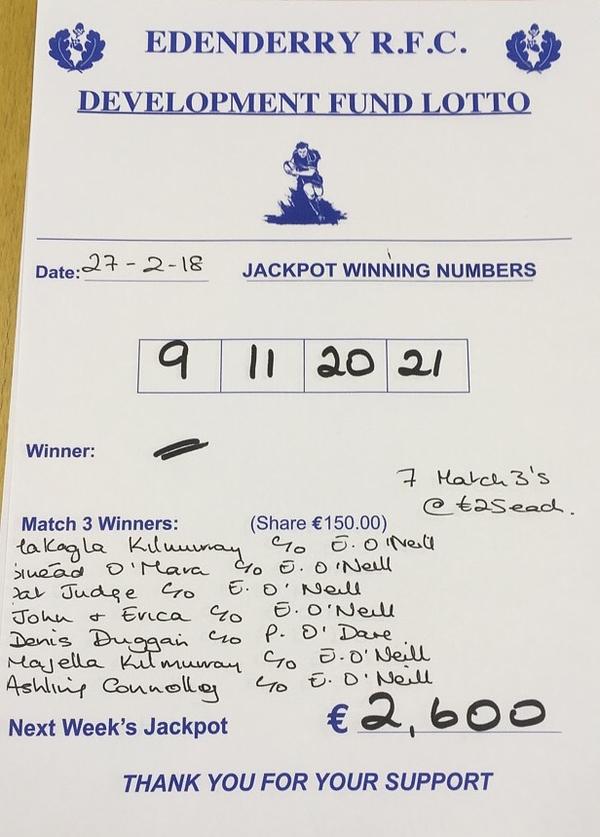 EDENDERRY R.F.C.
DEVELOPMENT FUND LOTTO
Date: 27-2-18 JACKPOT WINNING NUMBERS
9 11 20 21
Winner: —
7 Match 3's
@ €25 each.
Match 3 Winners: (Share €150.00)
Kilmurray c/o E. O'Neill
O'Mara c/o E. O'Neill
Judge c/o E. O'Neill
John + Erica c/o E. O'Neill
Denis Duggan c/o P. O'Dare
Majella Kilmurray c/o E. O'Neill
Ashling Connolly c/o E. O'Neill
Next Week's Jackpot € 2,600
THANK YOU FOR YOUR SUPPORT